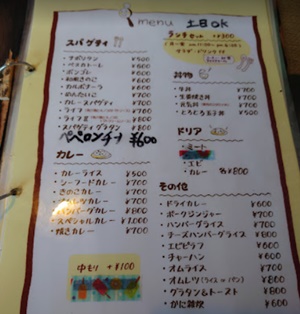 menu 土日OK
スパゲティ
・ナポリタン ¥500
・ペスカトーレ ¥600
・ボンゴレ ¥600
・和風きのこ ¥600
・カルボナーラ ¥600
・めんたいこ ¥600
・カレースパゲティ ¥700
・スパゲティグラタン ¥800
ペペロンチーノ ¥600
カレー
・カレーライス ¥500
・シーフードカレー ¥700
・きのこカレー ¥700
・ハンバーグカレー ¥800
・スペシャルカレー ¥1,000
・焼きカレー ¥700
中もり +¥100
ランチセット +¥300
丼物
・牛丼 ¥700
・生姜焼き丼 ¥700
ドリア
・ミート
・エビ
・カレー 各¥800
その他
・ドライカレー ¥600
・ポークジンジャー ¥700
・ハンバーグライス ¥700
・チーズハンバーグライス ¥800
・エビピラフ ¥600
・チャーハン ¥600
・オムライス ¥700
・オムレツ(ライス or パン) ¥800
・グラタン&トースト ¥800
・かた焼そば ¥600